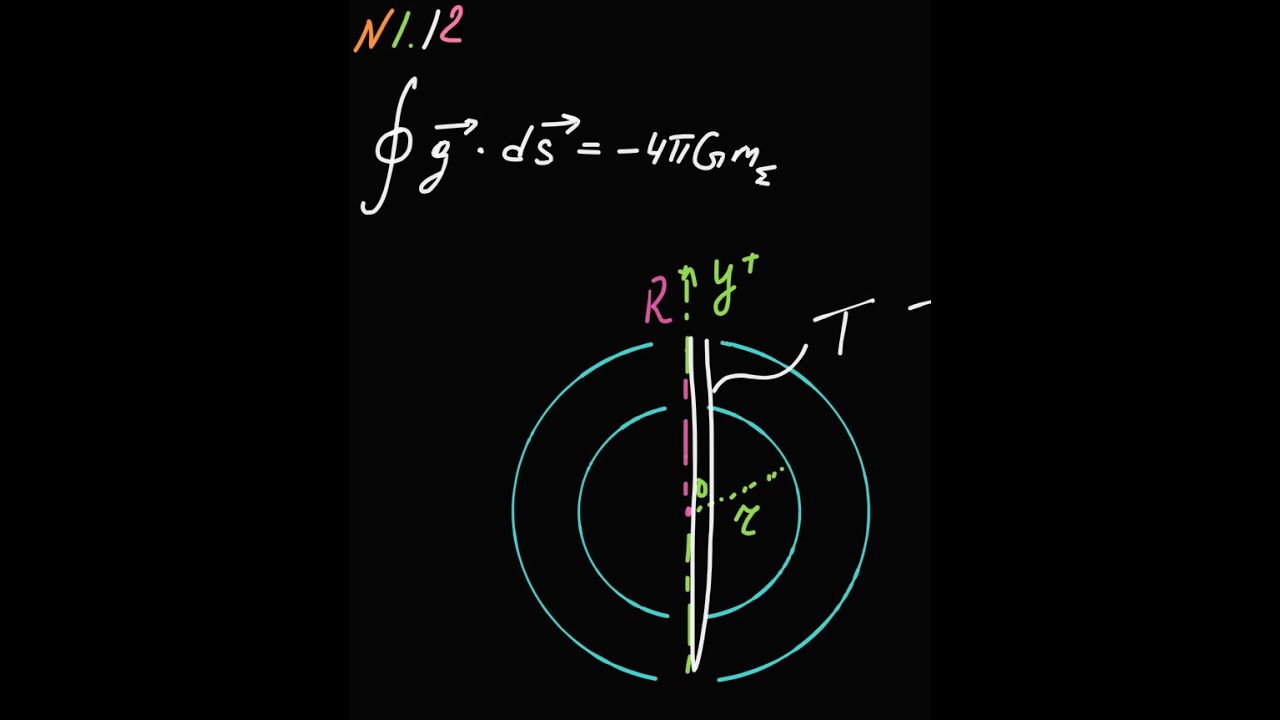 N1.12
∮ g⃗ · ds⃗ = -4πGm_Σ
R y⁺
T -
0
r